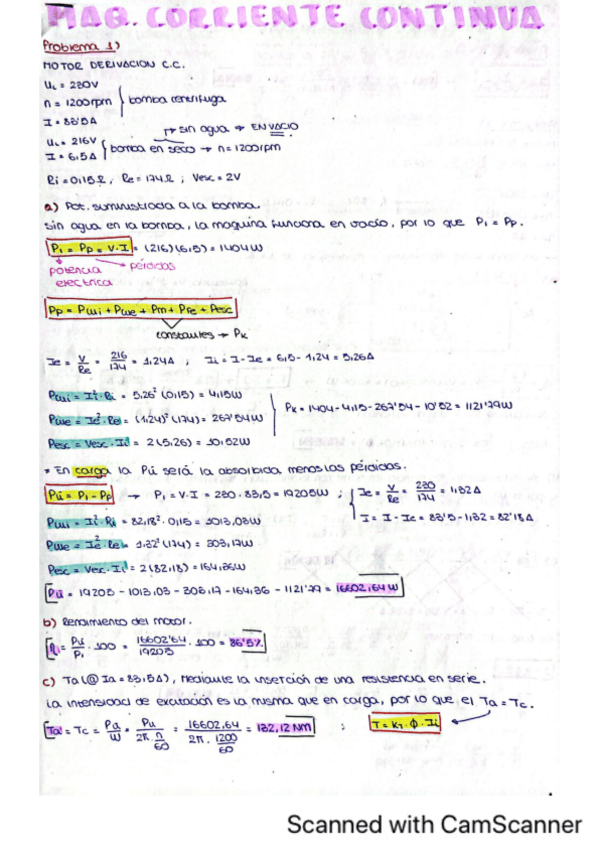 MAQ. CORRIENTE CONTINUA
Problema 1)
MOTOR DERIVACION C.C.
UL = 230V
n = 1200rpm } bomba centrifuga
I = 83'5A
→ sin agua → EN VACIO
UL = 216V
I = 6,5A } bomba en seco → n = 1200rpm
Ri = 0,15Ω, Re = 174Ω ; Vesc = 2V
a) Pot. suministrada a la bomba.
Sin agua en la bomba, la maquina funciona en vacio, por lo que P1 = Pp.
P1 = Pp = V·I = (216)(6,5) = 1404W
potencia electrica
pérdidas
Pp = Pcui + Pcue + Pm + PFe + Pesc
constantes → Pk
Ie = V/Re = 216/174 = 1,24A ; Ii = I - Ie = 6,5 - 1,24 = 5,26A
Pcui = Ii²·Ri = 5,26² (0,15) = 4,15W
Pcue = Ie²·Re = (1,24)² (174) = 267'54W } Pk = 1404 - 4,15 - 267'54 - 10'52 = 1121'79W
Pesc = Vesc·Ii = 2(5,26) = 10,52W
* En carga la Pú será la absorbida menos las pérdidas.
Pú = P1 - Pp → P1 = V·I = 230·83,5 = 19205W ; { Ie = V/Re = 230/174 = 1,32A
Pcui = Ii²·Ri = 82,18²·0,15 = 1013,03W I = I - Ie = 83'5 - 1,32 = 82'18A
Pcue = Ie²·Re = 1,32² (174) = 303,17W
Pesc = Vesc·Ii = 2(82,18) = 164,36W
Pú = 19205 - 1013,03 - 303,17 - 164,36 - 1121'79 = 16602,64W
b) Rendimiento del motor.
η = Pú/P1 · 100 = 16602'64/19205 · 100 = 86'5%
c) Ta (@ Ia = 83,5A), mediante la inserción de una resistencia en serie.
La intensidad de excitación es la misma que en carga, por lo que el Ta = Tc.
Ta = Tc = Pa/ω = Pu/(2π·n/60) = 16602,64/(2π·1200/60) = 132,12 Nm ; T = KT·Φ·Ii
Scanned with CamScanner